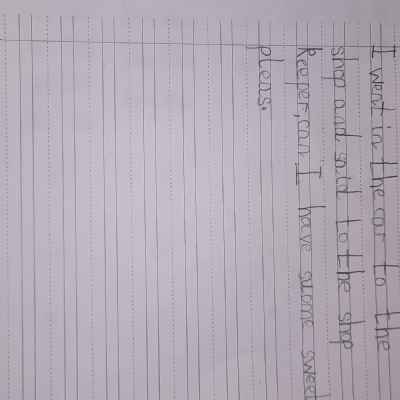 I went in the car to the
shop and said to the shop
keeper,can I have some sweet
pleas.